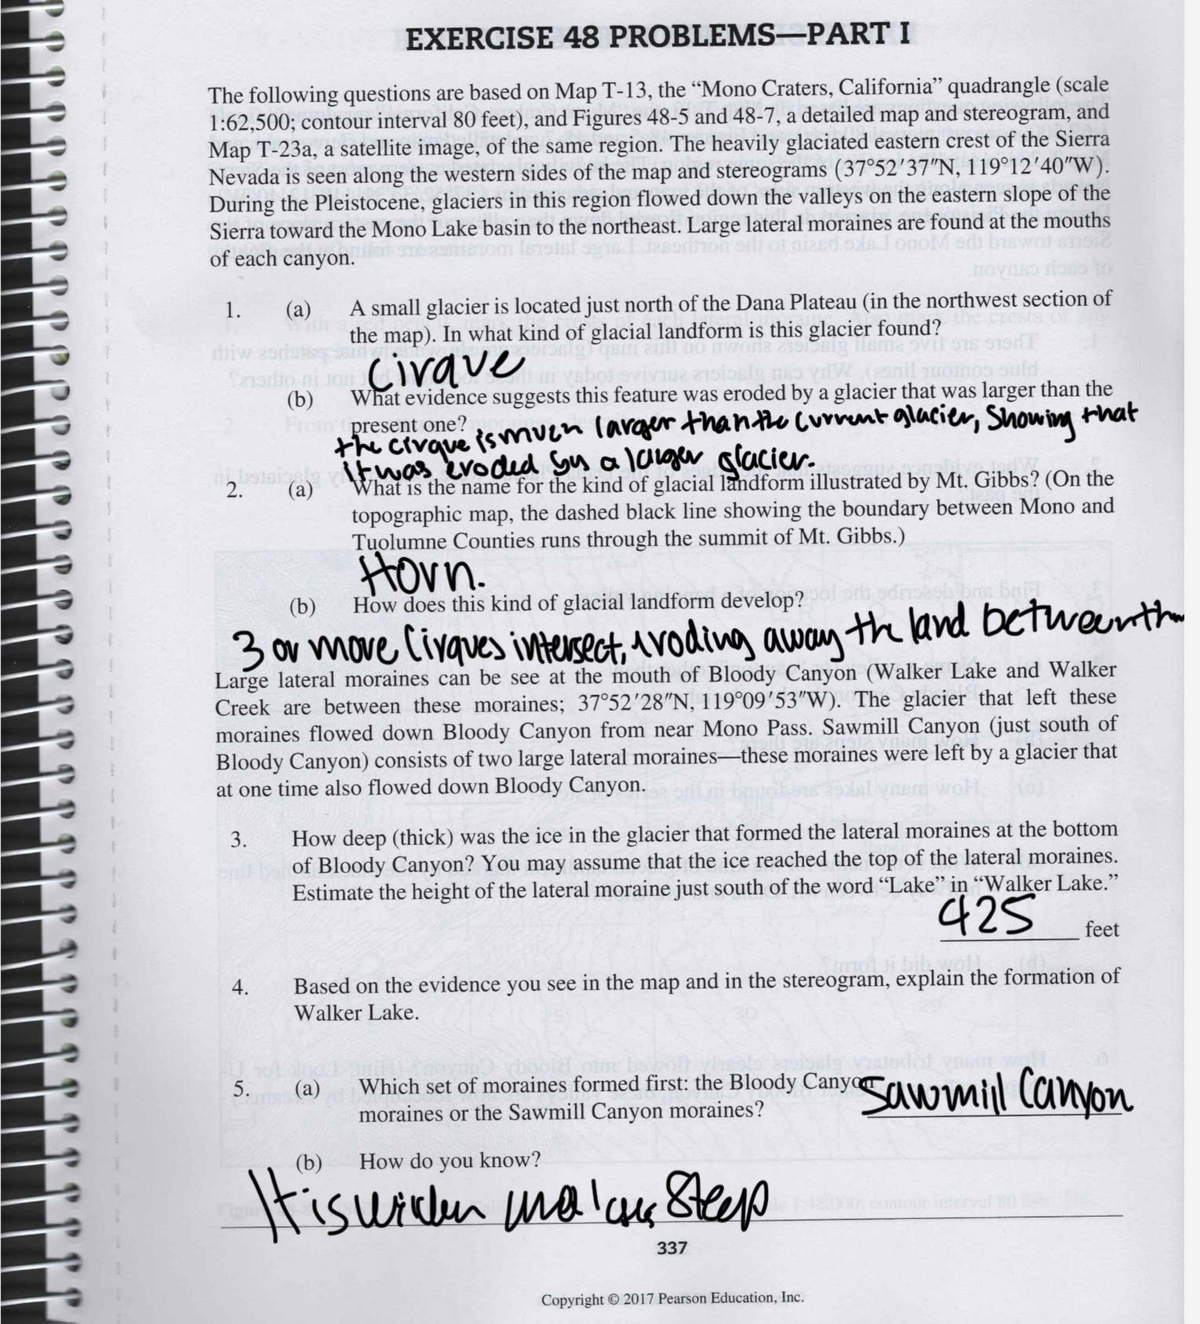 EXERCISE 48 PROBLEMS—PART I
The following questions are based on Map T-13, the “Mono Craters, California” quadrangle (scale
1:62,500; contour interval 80 feet), and Figures 48-5 and 48-7, a detailed map and stereogram, and
Map T-23a, a satellite image, of the same region. The heavily glaciated eastern crest of the Sierra
Nevada is seen along the western sides of the map and stereograms (37°52′37″N, 119°12′40″W).
During the Pleistocene, glaciers in this region flowed down the valleys on the eastern slope of the
Sierra toward the Mono Lake basin to the northeast. Large lateral moraines are found at the mouths
of each canyon.
1. (a) A small glacier is located just north of the Dana Plateau (in the northwest section of
the map). In what kind of glacial landform is this glacier found?
Cirque
(b) What evidence suggests this feature was eroded by a glacier that was larger than the
present one?
the cirque is much larger than the current glacier, showing that
it was eroded by a larger glacier.
2. (a) What is the name for the kind of glacial landform illustrated by Mt. Gibbs? (On the
topographic map, the dashed black line showing the boundary between Mono and
Tuolumne Counties runs through the summit of Mt. Gibbs.)
Horn.
(b) How does this kind of glacial landform develop?
3 or more Cirques intersect, eroding away the land between
Large lateral moraines can be see at the mouth of Bloody Canyon (Walker Lake and Walker
Creek are between these moraines; 37°52′28″N, 119°09′53″W). The glacier that left these
moraines flowed down Bloody Canyon from near Mono Pass. Sawmill Canyon (just south of
Bloody Canyon) consists of two large lateral moraines—these moraines were left by a glacier that
at one time also flowed down Bloody Canyon.
3. How deep (thick) was the ice in the glacier that formed the lateral moraines at the bottom
of Bloody Canyon? You may assume that the ice reached the top of the lateral moraines.
Estimate the height of the lateral moraine just south of the word “Lake” in “Walker Lake.”
425 feet
4. Based on the evidence you see in the map and in the stereogram, explain the formation of
Walker Lake.
5. (a) Which set of moraines formed first: the Bloody Canyo Sawmill Canyon
moraines or the Sawmill Canyon moraines?
(b) How do you know?
It is wider and less Steep
337
Copyright © 2017 Pearson Education, Inc.